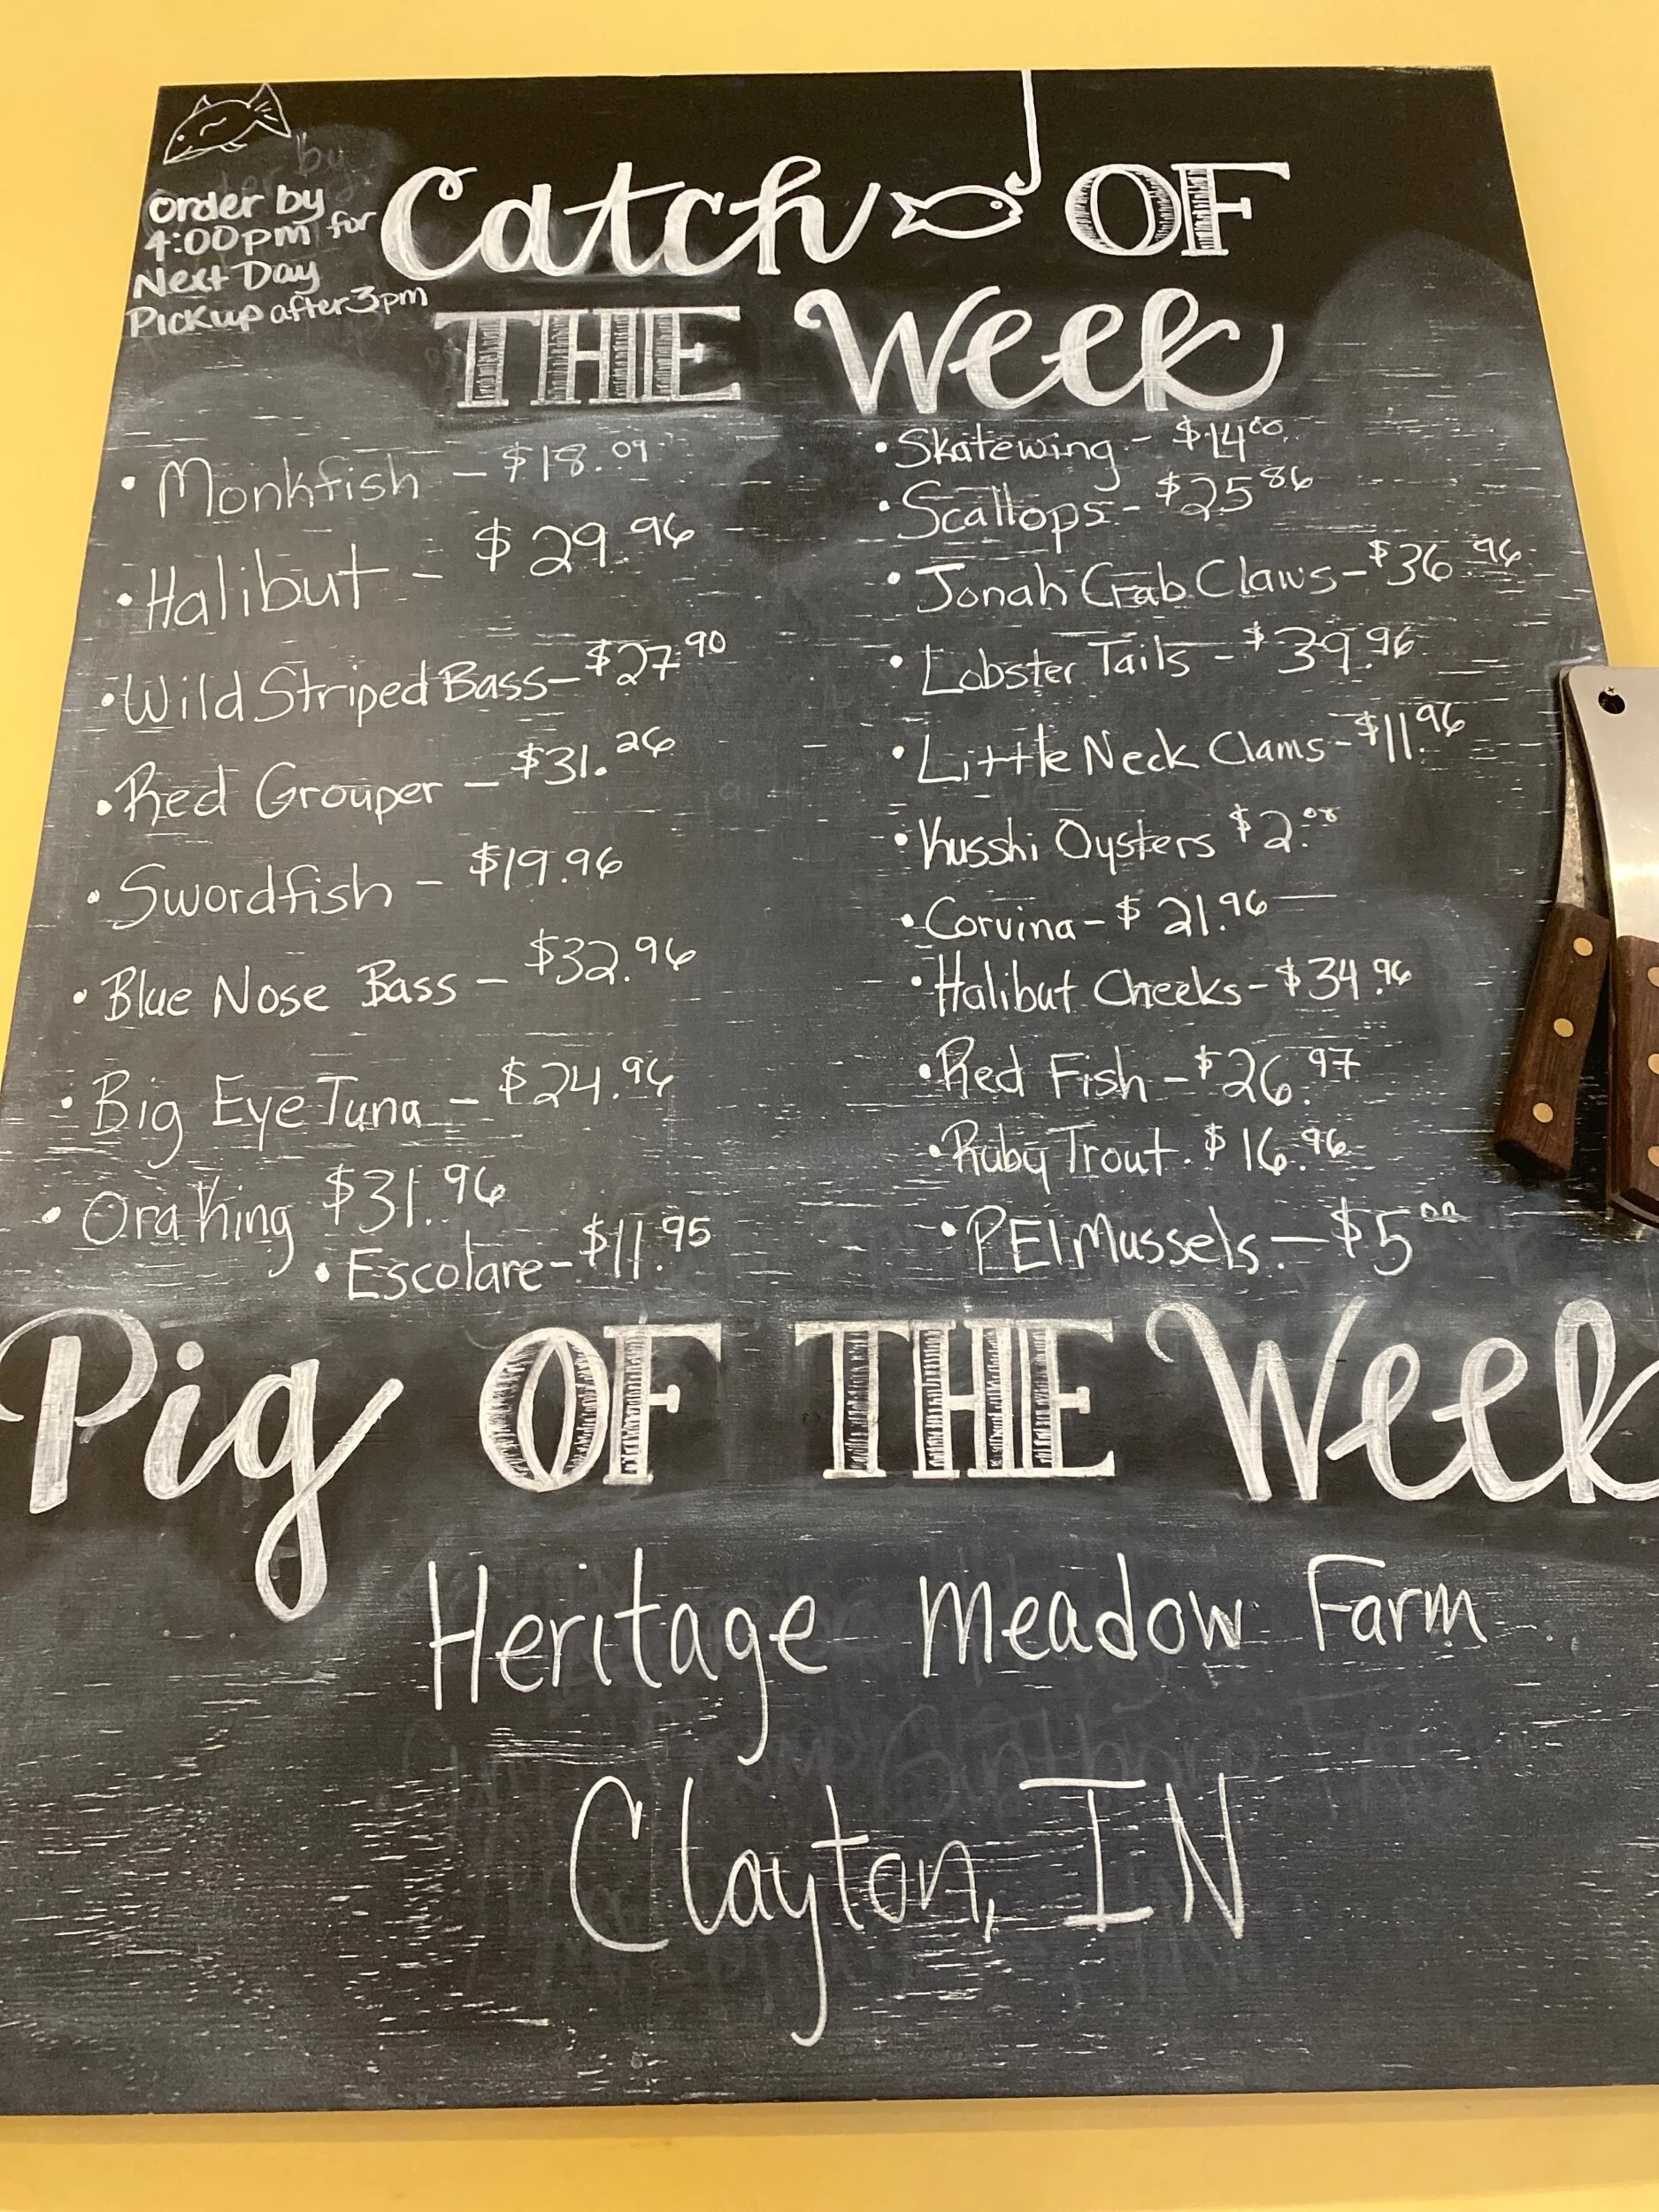 Order by
4:00pm for
Next Day
Pickup after 3pm
Catch OF
THE Week
• Monkfish - $18.09
• Halibut - $29.96
• Wild Striped Bass - $27.90
• Red Grouper - $31.26
• Swordfish - $19.96
• Blue Nose Bass - $32.96
• Big Eye Tuna - $24.96
• Ora King $31.96
• Escolare - $11.95
• Skatewing - $14.00
• Scallops - $25.86
• Jonah Crab Claws - $36.96
• Lobster Tails - $39.96
• Little Neck Clams - $11.96
• Kusshi Oysters $2.08
• Corvina - $21.96
• Halibut Cheeks - $34.96
• Red Fish - $26.97
• Ruby Trout. $16.96
• PEI Mussels - $5.00
Pig OF THE Week
Heritage Meadow Farm
Clayton, IN